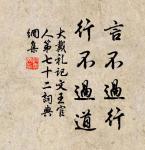 言不過行
行不過道
大戴礼記文王官
人第七十二詞典
網集